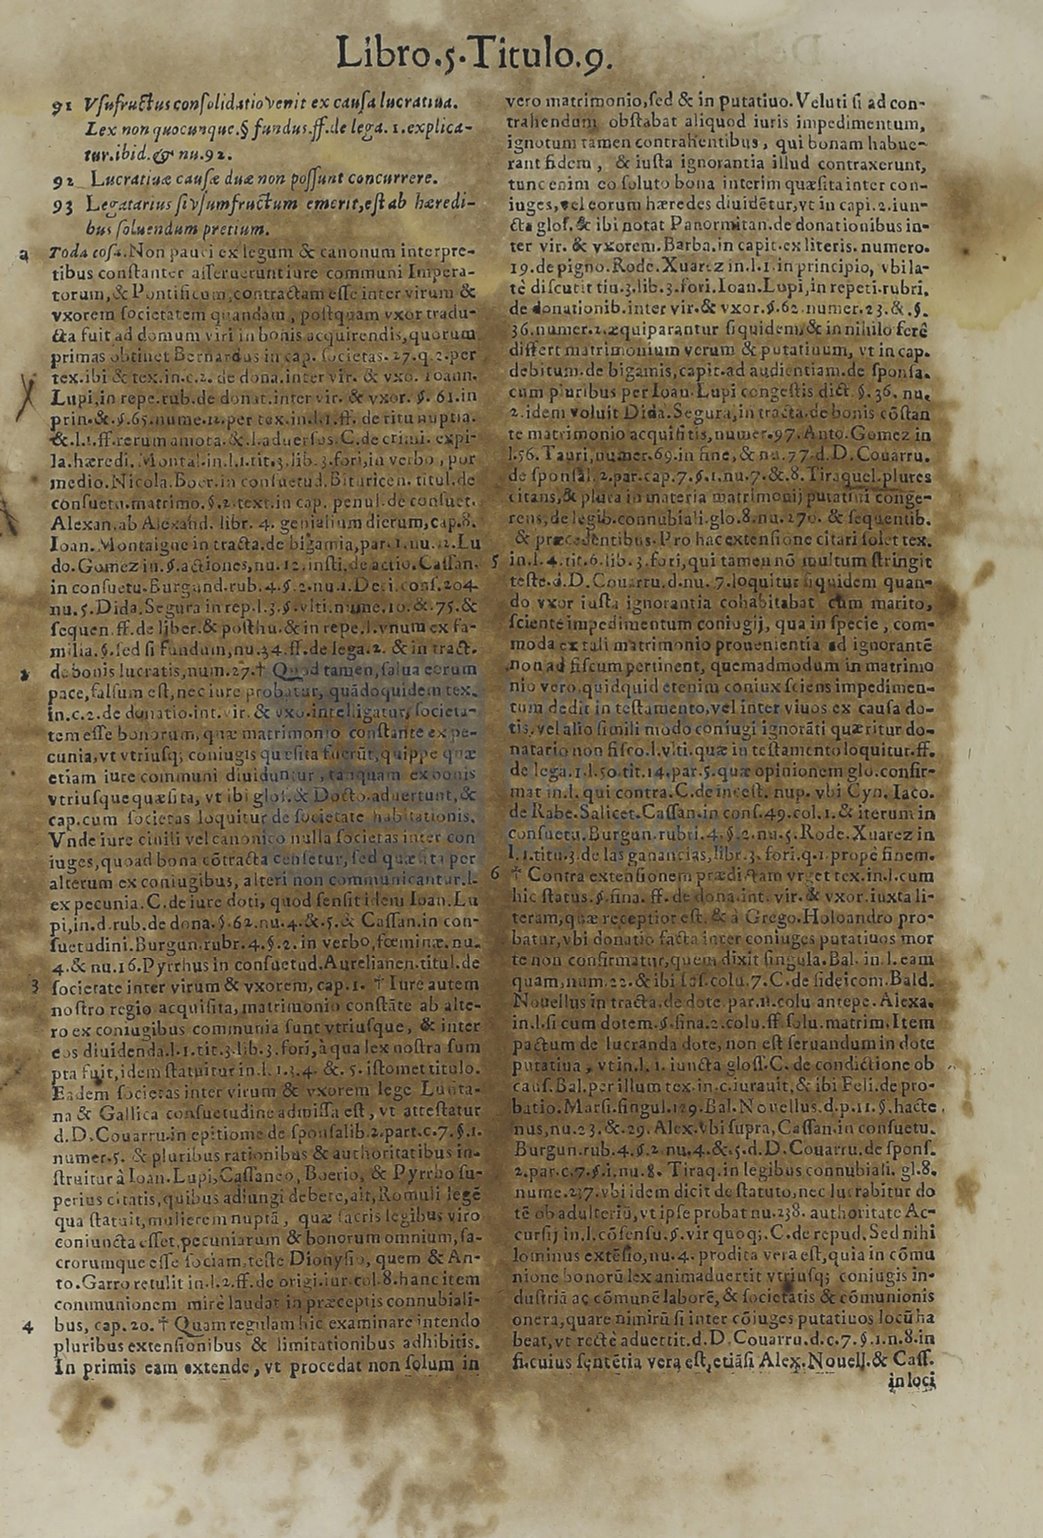 Libro.5.Titulo.9.
91 Vſufructus conſolidatio venit ex cauſa lucratiua.
Lex non quocunque.§ fundus.ff.de lega. 1.explica-
tur.ibid.& nu.92.
92 Lucratiuæ cauſæ duæ non poſſunt concurrere.
93 Legatarius ſi vſumfructum emerit,eſt ab hæredi-
bus ſoluendum pretium.
a Toda coſa.Non pauci ex legum & canonum interpre-
tibus conſtanter aſſeruerunt iure communi Impera-
torum,& Pontificum,contractam eſſe inter virum &
vxorem ſocietatem quandam, poſtquam vxor tradu-
cta fuit ad domum viri in bonis acquirendis,quorum
primas obtinet Bernardus in cap. ſocietas.27.q.2.per
tex.ibi & tex.in.c.2. de dona.inter vir. & vxo. Ioann.
Lupi,in repe.rub.de donat.inter vir. & vxor. §. 61.in
prin.&.§.65.nume.12.per tex.in.l.1.ff. de ritu nuptia.
&.l.1.ff.rerum amota.&.l.aduerſus.C.de crimi. expi-
la.hæredi.Montal.in.l.1.tit.3.lib.3.fori,in verbo, por
medio.Nicola.Boer.in conſuetud.Bituricen. titul.de
conſuetu.matrimo.§.2.text.in cap. penul.de conſuet.
Alexan.ab Alexand. libr. 4. genialium dierum,cap.8.
Ioan.Montaigne in tracta.de bigamia,par.1.nu.12.Lu
do.Gomez in.§.actiones,nu.12.inſti.de actio.Caſſan.
in conſuetu.Burgund.rub.4.§.2.nu.1.Deci.conſ.204
nu.5.Dida.Segura in rep.l.3.§.vlti.nume.10.&.75.&
ſequen.ff.de liber.& poſthu.& in repe.l.vnum ex fa-
milia.§.ſed ſi fundum,nu.34.ff.de lega.2. & in tract.
de bonis lucratis,num.27.† Quod tamen,ſalua eorum
pace,falſum eſt,nec iure probatur, quādoquidem tex.
in.c.2.de donatio.int.vir. & vxo.intelligatur, ſocieta-
tem eſſe bonorum,quæ matrimonio conſtante ex pe-
cunia,vt vtriuſq; coniugis quæſita fuerūt,quippe quæ
etiam iure communi diuiduntur, tanquam ex bonis
vtriuſque quæſita, vt ibi gloſ.& Docto.aduertunt,&
cap.cum ſocietas loquitur de ſocietate habitationis.
Vnde iure ciuili vel canonico nulla ſocietas inter con
iuges,quoad bona cōtracta cenſetur,ſed quæſita per
alterum ex coniugibus, alteri non communicantur.l.
ex pecunia.C.de iure doti, quod ſenſit idem Ioan.Lu
pi,in d.rub.de dona.§.62.nu.4.&.5.& Caſſan.in con-
ſuetudini.Burgun.rubr.4.§.2. in verbo,fœminæ.nu.
4.& nu.16.Pyrrhus in conſuetud.Aurelianen.titul.de
3 ſocietate inter virum & vxorem, cap.1. † Iure autem
noſtro regio acquiſita,matrimonio conſtāte ab alte-
ro ex coniugibus communia ſunt vtriuſque, & inter
eos diuidenda.l.1.tit.3.lib.3.fori,à qua lex noſtra ſum
pta fuit,idem ſtatuitur in.l.1.3.4. &.5.iſto met titulo.
Eadem ſocietas inter virum & vxorem lege Luſita-
na & Gallica conſuetudine admiſſa eſt, vt atteſtatur
d.D.Couarru.in epitiome de ſponſalib.2.part.c.7.§.1.
numer.5. & pluribus rationibus & authoritatibus in-
ſtruitur à Ioan.Lupi,Caſſaneo, Boerio, & Pyrrho ſu-
perius citatis,quibus adiungi debere,ait,Romuli legē
qua ſtatuit,mulierem nuptā, quæ ſacris legibus viro
coniuncta eſſet,pecuniarum & bonorum omnium,ſa-
crorumque eſſe ſociam,teſte Dionyſio, quem & An-
to.Garro retulit in.l.2.ff.de origi.iur.col.8.hanc item
communionem mirè laudat in præceptis connubiali-
4 bus, cap.20.† Quam regulam hic examinare intendo
pluribus extenſionibus & limitationibus adhibitis.
In primis eam extende, vt procedat non ſolum in
vero matrimonio,ſed & in putatiuo.Veluti ſi ad con-
trahendum obſtabat aliquod iuris impedimentum,
ignotum tamen contrahentibus, qui bonam habue-
rant fidem, & iuſta ignorantia illud contraxerunt,
tunc enim eo ſoluto bona interim quæſita inter con-
iuges,vel eorum hæredes diuidētur,vt in capi.2.iun-
cta gloſ.& ibi notat Panormitan.de donationibus in-
ter vir. & vxorem.Barba.in capit.ex literis. numero.
19.de pigno.Rode.Xuarez in.l.1.in principio, vbi la-
tè diſcutit titu.3.lib.3.fori.Ioan.Lupi,in repeti.rubri.
de donationib.inter vir.& vxor.§.62.numer.23.&.§.
36.numer.2.æquiparantur ſiquidem,& in nihilo ferè
differt matrimonium verum & putatiuum, vt in cap.
debitum.de bigamis,capit.ad audientiam.de ſponſa.
cum pluribus per Ioan.Lupi congeſtis dict. §.36. nu.
2.idem voluit Dida.Segura,in tracta.de bonis cōſtan
te matrimonio acquiſitis,numer.97.Anto.Gomez in
l.56.Tauri,numer.69.in fine,& nu.77.d.D.Couarru.
de ſponſal.2.par.cap.7.§.1.nu.7.&.8.Tiraquel.plures
citans,& plura in materia matrimonij putatiui conge-
rens,de legib.connubiali.glo.8.nu.270. & ſequentib.
& præcedentibus.Pro hac extenſione citari ſolet tex.
5 in.l.4.tit.6.lib.3.fori,qui tamen nō multum ſtringit
teſte.d.D.Couarru.d.nu. 7.loquitur ſiquidem quan-
do vxor iuſta ignorantia cohabitabat cum marito,
ſciente impedimentum coniugij, qua in ſpecie, com-
moda ex tali matrimonio prouenientia ad ignorantē
non ad fiſcum pertinent, quemadmodum in matrimo
nio vero.quidquid etenim coniux ſciens impedimen-
tum dedit in teſtamento,vel inter viuos ex cauſa do-
tis,vel alio ſimili modo coniugi ignorāti quæritur do-
natario non fiſco.l.vlti.quæ in teſtamento loquitur.ff.
de lega.1.l.50.tit.14.par.5.quæ opinionem glo.confir-
mat in.l. qui contra.C.de inceſt. nup. vbi Cyn. Iaco.
de Rabe.Salicet.Caſſan.in conſ.49.col.1.& iterum in
conſuetu.Burgun.rubri.4.§.2.nu.5.Rode.Xuarez in
l.1.titu.3.de las ganancias,libr.3. fori.q.1.propè finem.
6 † Contra extenſionem prædictam vrget tex.in.l.cum
hic ſtatus.§.fina. ff. de dona.int. vir. & vxor.iuxta li-
teram,quæ receptior eſt, & à Grego.Holoandro pro-
batur,vbi donatio facta inter coniuges putatiuos mor
te non confirmatur,quem dixit ſingula.Bal. in.l.eam
quam,num.22.& ibi Iaſ.colu.7.C.de fideicom.Bald.
Nouellus in tracta.de dote.par.11.colu antepe.Alexa.
in.l.ſi cum dotem.§.fina.2.colu.ff ſolu.matrim.Item
pactum de lucranda dote, non eſt ſeruandum in dote
putatiua, vt in.l. 1. iuncta gloſſ.C. de condictione ob
cauſ.Bal.per illum tex.in.c.iurauit,& ibi Feli.de pro-
batio.Marſi.ſingul.129.Bal.Nouellus.d.p.11.§.hacte.
nus,nu.23.&.29.Alex.vbi ſupra,Caſſan.in conſuetu.
Burgun.rub.4.§.2.nu.4.&.5.d.D.Couarru.de ſponſ.
2.par.c.7.§.1.nu.8. Tiraq.in legibus connubiali. gl.8.
nume.237.vbi idem dicit de ſtatuto,nec lucrabitur do
tē ob adulteriū,vt ipſe probat nu.238. authoritate Ac-
curſij in.l.cōſenſu.§.vir quoq;.C.de repud.Sed nihi
lominus extēſio,nu.4. prodita vera eſt,quia in cōmu
nione bonorū lex animaduertit vtriuſq; coniugis in-
duſtriā ac cōmunē laborē, & ſocietatis & cōmunionis
onera,quare nimirū ſi inter cōiuges putatiuos locū ha
beat, vt rectè aduertit.d.D.Couarru.d.c.7.§.1.n.8.in
fi.cuius ſentētia vera eſt,etiāſi Alex.Nouell.& Caſſ.
in loci